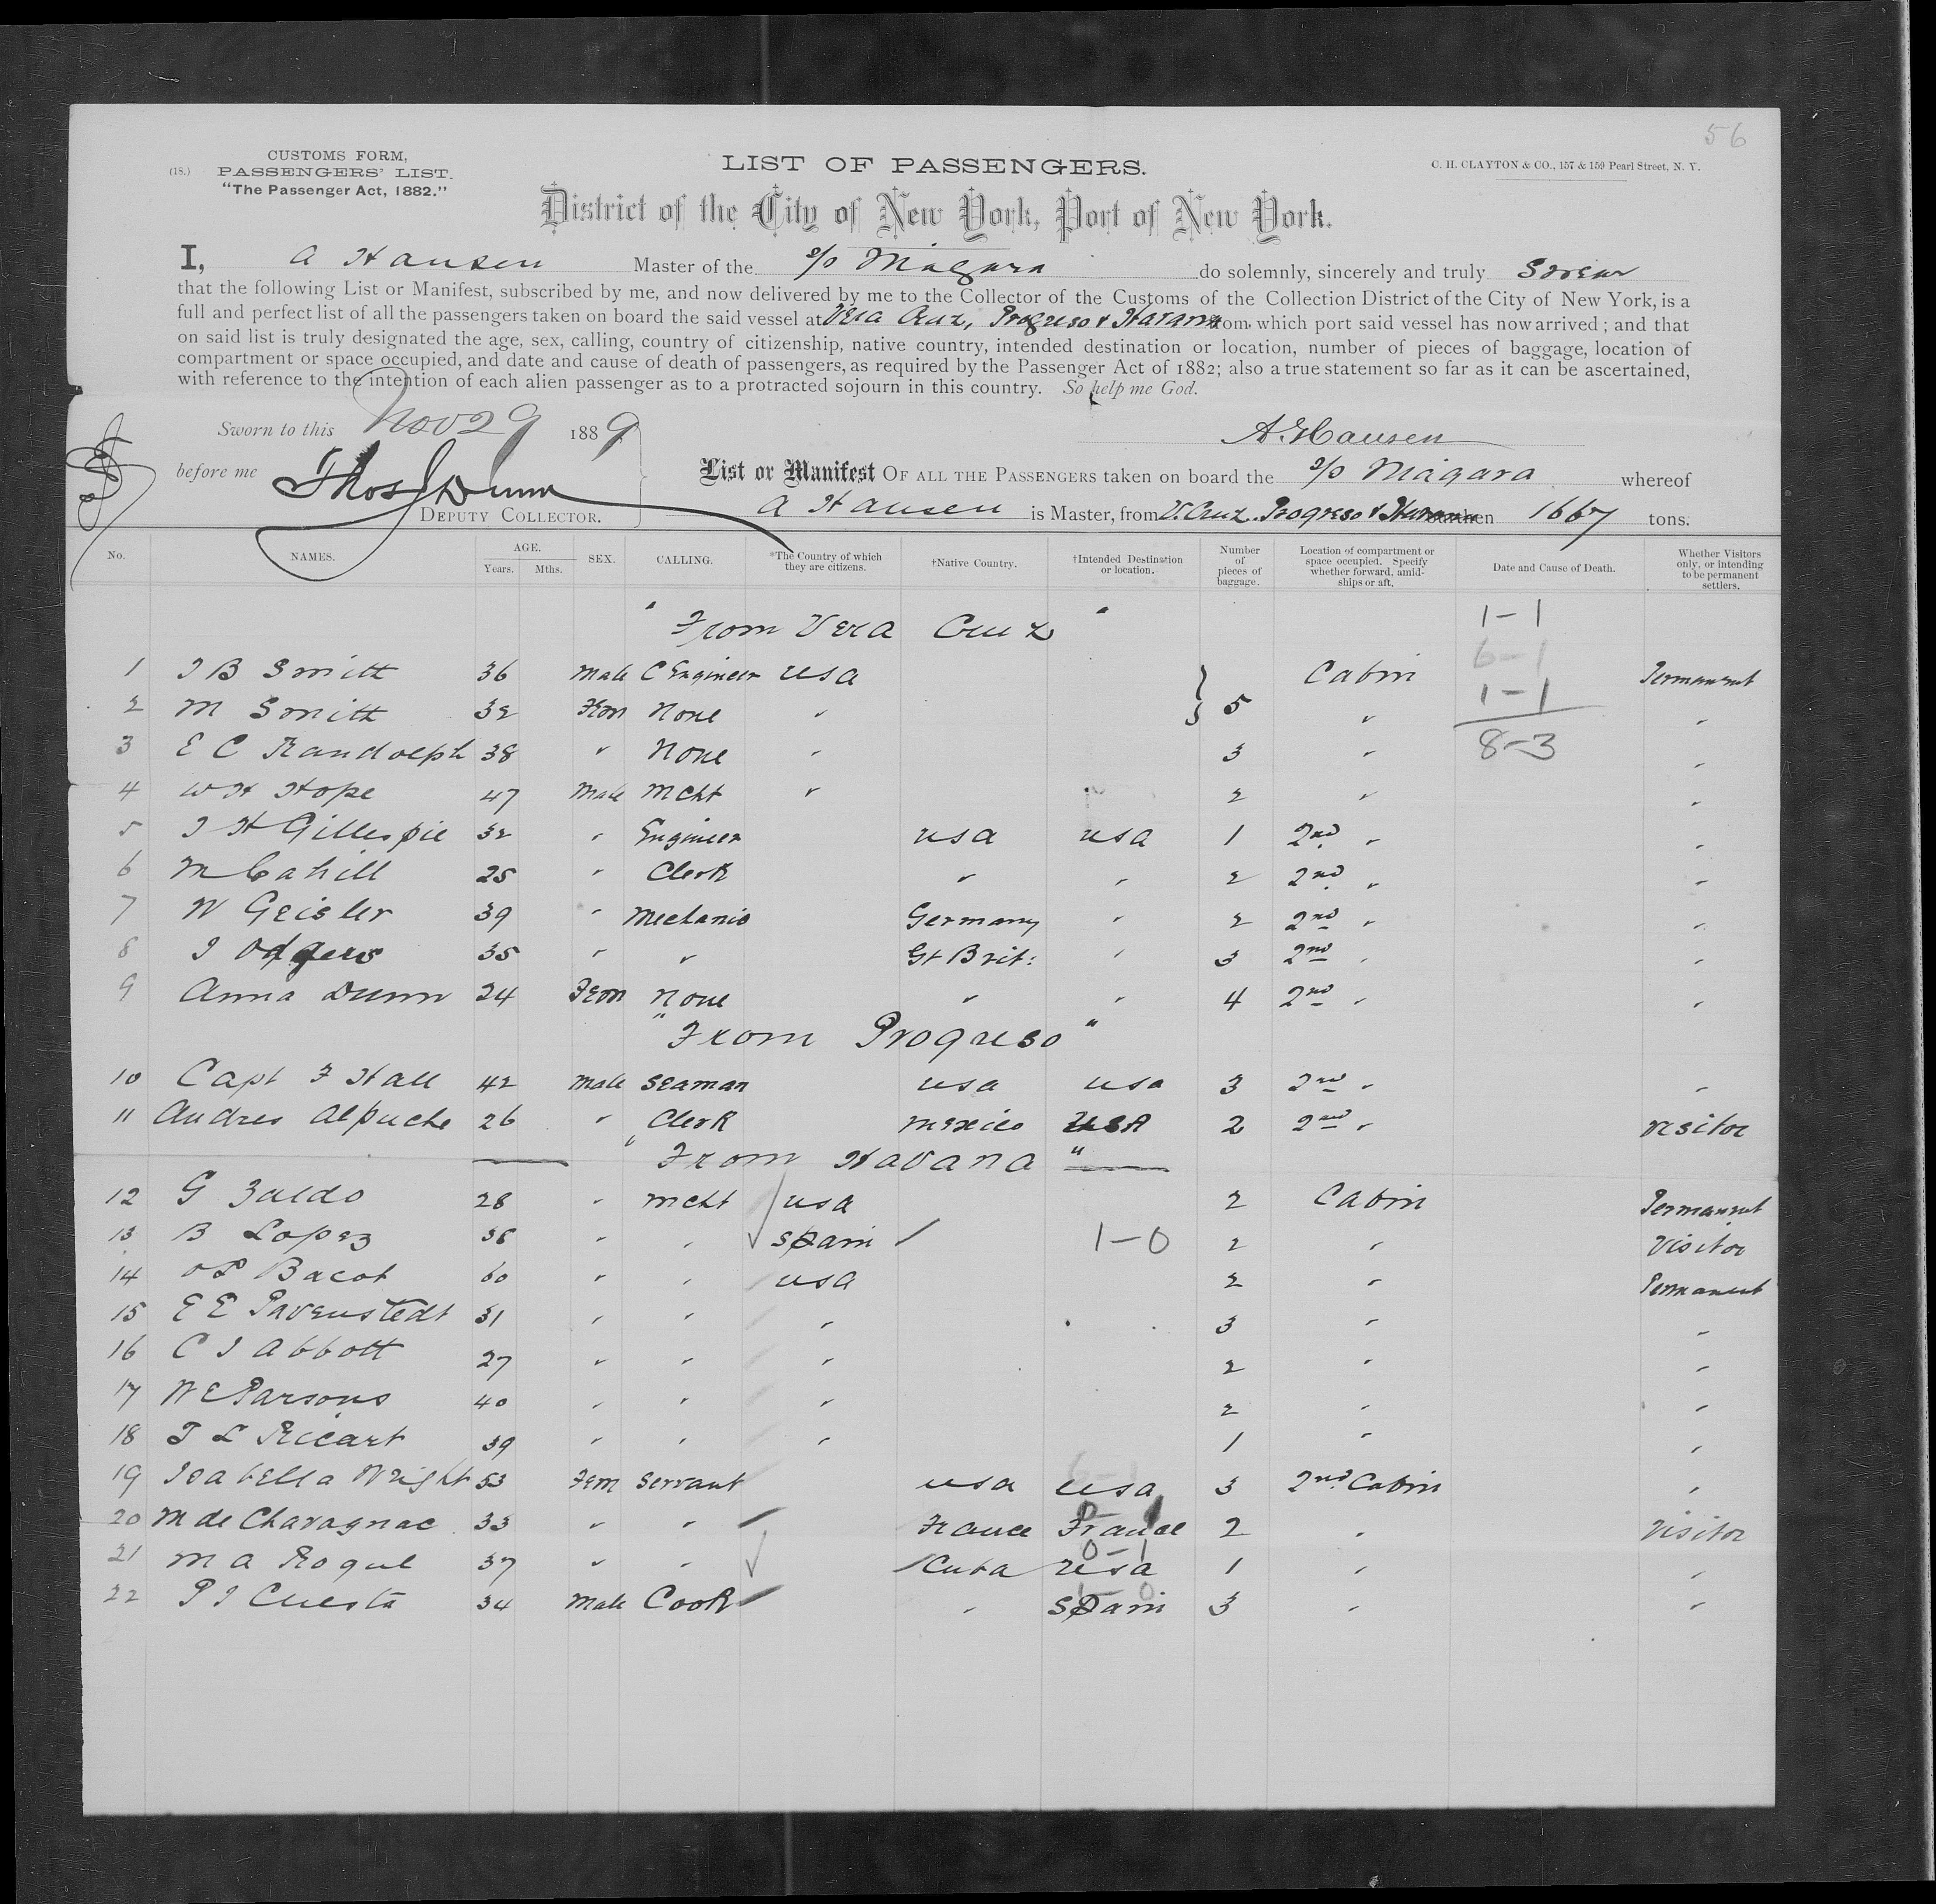 56
CUSTOMS FORM,
(18.) PASSENGERS' LIST.
"The Passenger Act, 1882."
LIST OF PASSENGERS.
C. H. CLAYTON & CO., 157 & 159 Pearl Street, N. Y.
District of the City of New York, Port of New York.
I, A Hansen Master of the s/s Niagara do solemnly, sincerely and truly Swear
that the following List or Manifest, subscribed by me, and now delivered by me to the Collector of the Customs of the Collection District of the City of New York, is a
full and perfect list of all the passengers taken on board the said vessel at Vera Cruz, Progreso & Havana from which port said vessel has now arrived; and that
on said list is truly designated the age, sex, calling, country of citizenship, native country, intended destination or location, number of pieces of baggage, location of
compartment or space occupied, and date and cause of death of passengers, as required by the Passenger Act of 1882; also a true statement so far as it can be ascertained,
with reference to the intention of each alien passenger as to a protracted sojourn in this country. So help me God.
Sworn to this Nov 29 1889 A. Hansen
before me Thos J Dunn
List or Manifest OF ALL THE PASSENGERS taken on board the s/s Niagara whereof
DEPUTY COLLECTOR. A Hansen is Master, from V. Cruz. Progreso & Havana burthen 1667 tons.
No. NAMES. AGE. Years. Mths. SEX. CALLING. *The Country of which they are citizens. †Native Country. †Intended Destination or location. Number of pieces of baggage. Location of compartment or space occupied. Specify whether forward, amidships or aft. Date and Cause of Death. Whether Visitors only, or intending to be permanent settlers.
" From Vera Cruz " 1-1
6-1
1 J B Smith 36 Male C Engineer USA Cabin Permanent
1-1
2 M Smith 32 Fem None " } 5 " "
3 E C Randolph 38 " None " 3 " 8-3 "
4 W H Hope 47 Male Mcht " 2 " "
5 J H Gillespie 32 " Engineer USA USA 1 2nd " "
6 M Cahill 25 " Clerk " " 2 2nd " "
7 W Geisler 39 " Mechanic Germany " 2 2nd " "
8 J Odgers 35 " " Gt Brit: " 3 2nd " "
9 Anna Dunn 24 Fem None " " 4 2nd " "
" From Progreso "
10 Capt F Hall 42 Male Seaman USA USA 3 2nd " "
11 Andres Alpuche 26 " Clerk Mexico USA 2 2nd " Visitor
" From Havana "
12 G Zaldo 28 " Mcht USA 2 Cabin Permanent
13 B Lopez 38 " " Spain 1-0 2 " Visitor
14 O P Bacot 60 " " USA 2 " Permanent
15 E E Pavenstedt 31 " " " 3 " "
16 C J Abbott 27 " " " 2 " "
17 W E Parsons 40 " " " 2 " "
18 J L Ricart 39 " " " 1 " "
19 Isabella Wright 53 Fem Servant USA USA 3 2nd Cabin "
20 M de Chavagnac 33 " " France France 2 " Visitor
0-1
21 M A Roque 37 " " Cuba USA 1 " "
22 P J Cuesta 34 Male Cook " Spain 3 " "